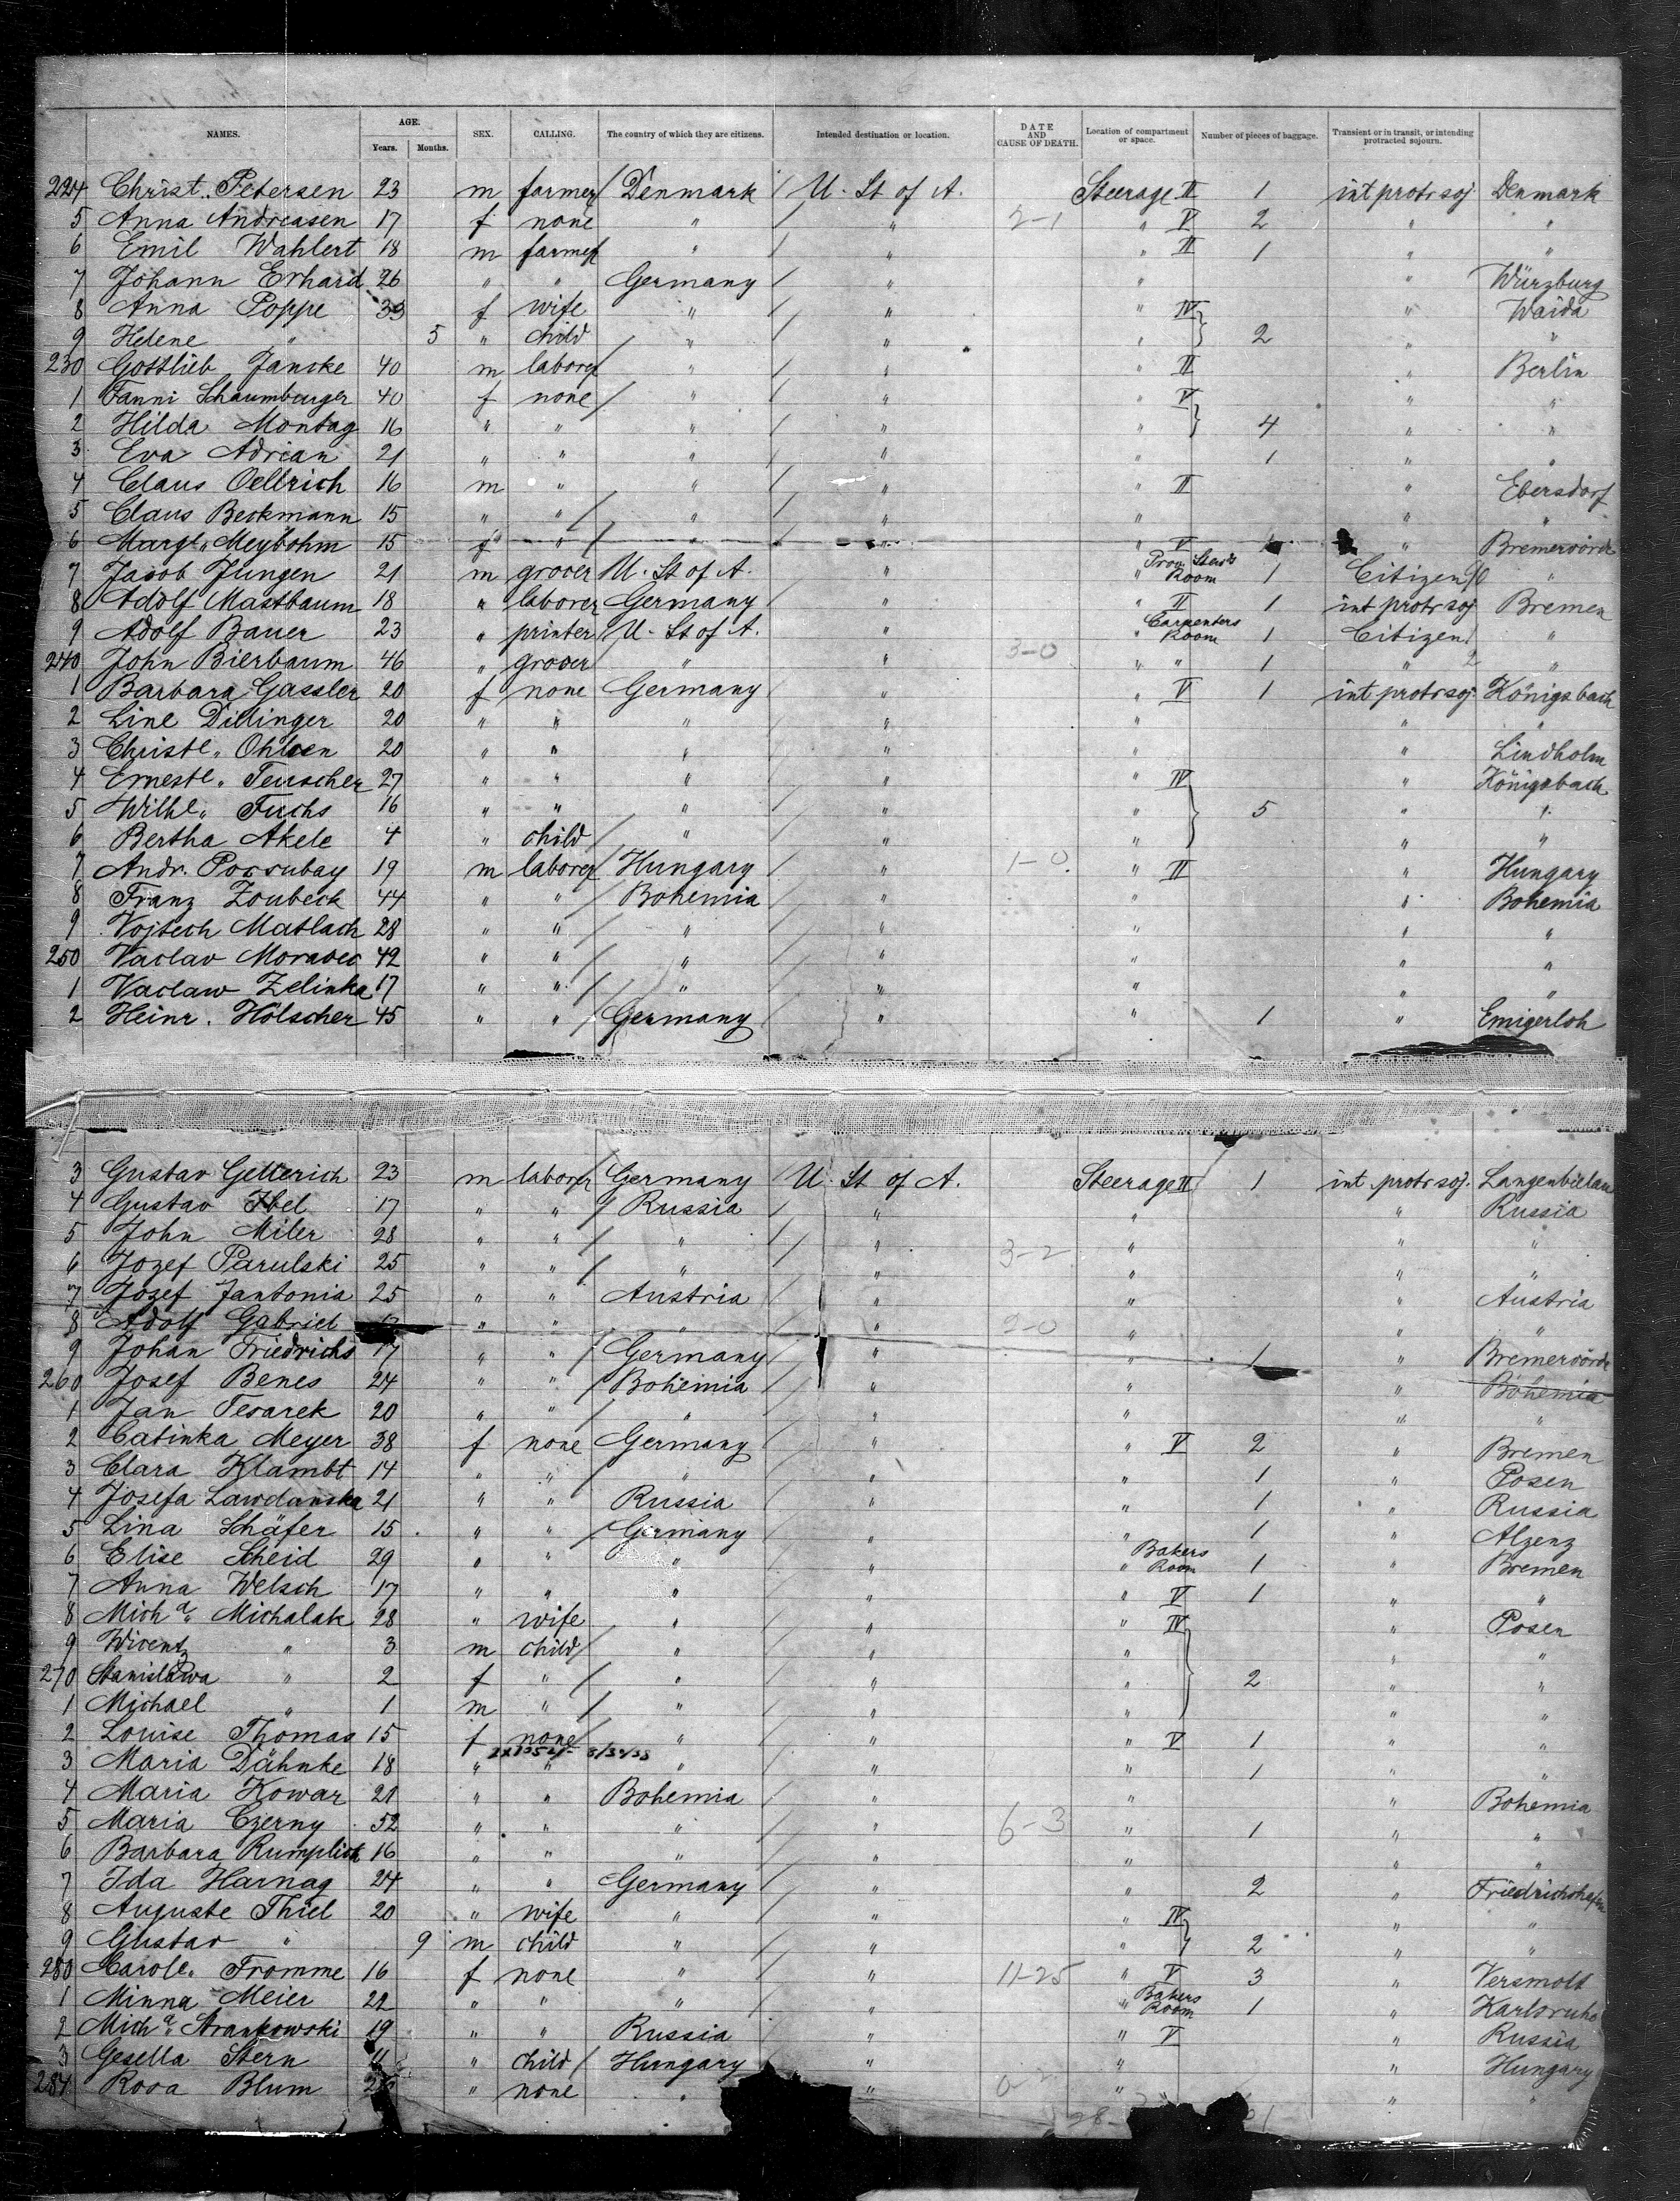 NAMES. AGE. Years. Months. SEX. CALLING. The country of which they are citizens. Intended destination or location. DATE AND CAUSE OF DEATH. Location of compartment or space. Number of pieces of baggage. Transient or in transit, or intending protracted sojourn.
224 Christ. Petersen 23 m farmer Denmark U. St of A. Steerage II 1 int protr soj Denmark
5 Anna Andreasen 17 f none " " 2-1 " V 2 " "
6 Emil Wahlert 18 m farmer " " " II 1 "
7 Johann Erhard 26 " " Germany " " " Würzburg
8 Anna Poppe 33 f wife " " " IV " Waida
9 Helene " 5 " child " " " 2 " "
230 Gottlieb Jancke 40 m laborer " " " II " Berlin
1 Fanni Schaumburger 40 f none " " " V " "
2 Hilda Montag 16 " " " " " 4 " "
3 Eva Adrian 21 " " " " " 1 " "
4 Claus Oellrich 16 m " " " " II " Ebersdorf
5 Claus Beckmann 15 " " " " " " "
6 Margt. Meybohm 15 f " " " " V " Bremervörde
7 Jacob Jungen 21 m grocer U. St of A. " " Room 1 Citizen "
8 Adolf Mastbaum 18 " laborer Germany " " II 1 int protr soj Bremen
9 Adolf Bauer 23 " printer U. St of A. " " Carpenters Room 1 Citizen "
240 John Bierbaum 46 " grocer " " 3-0 " " 1 " 2 "
1 Barbara Gassler 20 f none Germany " " V 1 int protr soj. Königsbach
2 Line Dillinger 20 " " " " " " "
3 Christe. Ohlsen 20 " " " " " " Lindholm
4 Erneste. Teuscher 27 " " " " " IV " Königsbach
5 Wilhe. Fuchs 16 " " " " " 5 " "
6 Bertha Akele 4 " child " " " " "
7 Andr. Porsubay 19 m laborer Hungary " 1-0 " II " Hungary
8 Franz Zoubeck 44 " " Bohemia " " " Bohemia
9 Vojtech Matlach 28 " " " " " " "
250 Vaclav Moravec 42 " " " " " " "
1 Vaclaw Zelinka 17 " " " " " " "
2 Heinr. Hölscher 45 " " Germany " " 1 " Emigerloh
3 Gustav Getterich 23 m laborer Germany U. St of A. Steerage II 1 int. protr soj. Langenbielau
4 Gustav Ibel 17 " " Russia " " " Russia
5 John Miler 28 " " " " 3-2 " " "
6 Jozef Parulski 25 " " " " " " "
7 Jozef Jantonia 25 " " Austria " " " Austria
8 Adolf Gabriel " " " " 2-0 " " "
9 Johan Friedrichs 17 " " Germany " " 1 " Bremervörde
260 Josef Benes 24 " " Bohemia " " " Bohemia
1 Jan Tesarek 20 " " " " " " "
2 Catinka Meyer 38 f none Germany " " V 2 " Bremen
3 Clara Klambt 14 " " " " " 1 " Posen
4 Josefa Lawdanska 21 " " Russia " " 1 " Russia
5 Lina Schäfer 15 " " Germany " " 1 " Alzenz
6 Elise Scheid 29 " " " " " Bakers Room 1 " Bremen
7 Anna Welsch 17 " " " " " V 1 " "
8 Micha. Michalak 28 " wife " " " IV " Posen
9 Wicentz " 3 m child " " " " "
270 Stanislawa " 2 f " " " " 2 " "
1 Michael " 1 m " " " " " "
2 Louise Thomas 15 f none " " " V 1 " "
3 Maria Dähnke 18 " " " " " 1 " "
4 Maria Kowar 21 " " Bohemia " " " Bohemia
5 Maria Czerny 52 " " " " 6-3 " 1 " "
6 Barbara Rumplich 16 " " " " " " "
7 Ida Harnag 24 " " Germany " " 2 " Friedrichshafen
8 Auguste Thiel 20 " wife " " " IV " "
9 Gustav " 9 m child " " " 2 " "
280 Karole. Fromme 16 f none " " 11-25 " V 3 " Versmold
1 Minna Meier 22 " " " " " Bakers Room 1 " Karlsruhe
2 Micha. Strankowski 19 " " Russia " " V " Russia
3 Gesella Stern 11 " child Hungary " " " Hungary
284 Rosa Blum " none " " " " "